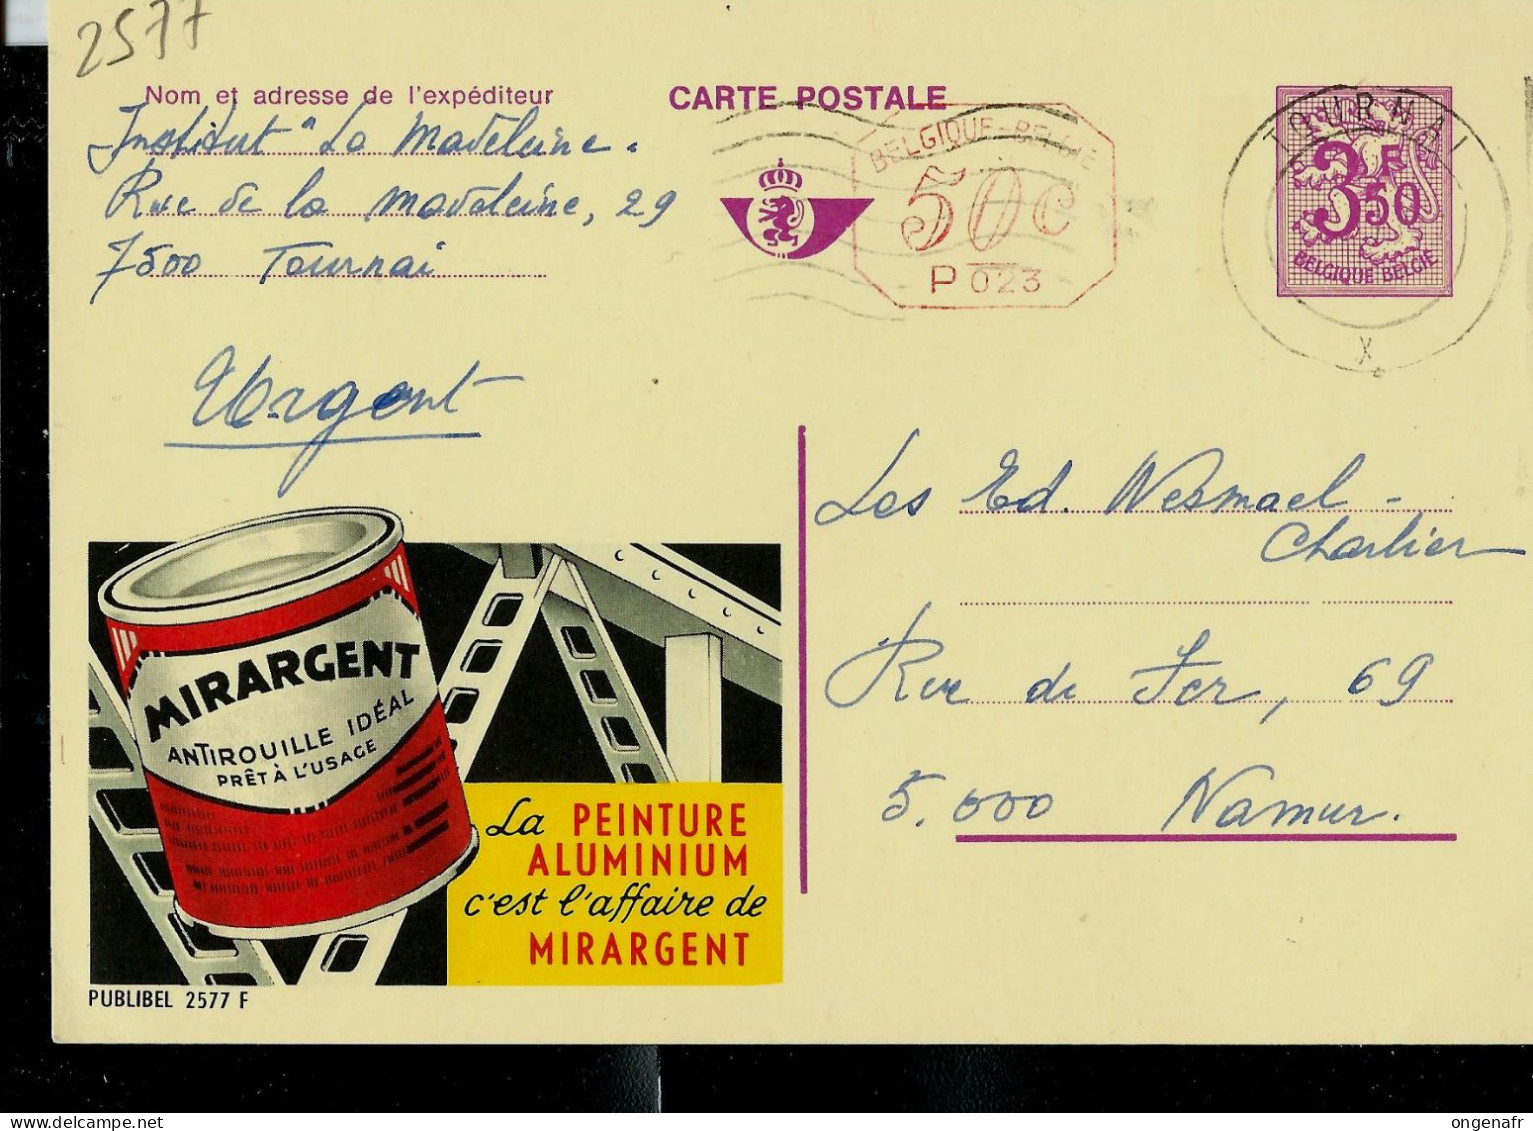 2577
Nom et adresse de l'expéditeur
CARTE POSTALE
Institut "La Madeleine.
Rue de la Madeleine, 29
7500 Tournai
BELGIQUE-BELGIE
50c
P 023
TOURNAI
X
3F50
BELGIQUE BELGIË
Urgent
Les Ed. Wesmael-
Charlier
Rue de Fer, 69
5.000 Namur.
MIRARGENT
ANTIROUILLE IDÉAL
PRÊT À L'USAGE
La PEINTURE
ALUMINIUM
c'est l'affaire de
MIRARGENT
PUBLIBEL 2577 F
ongenafr